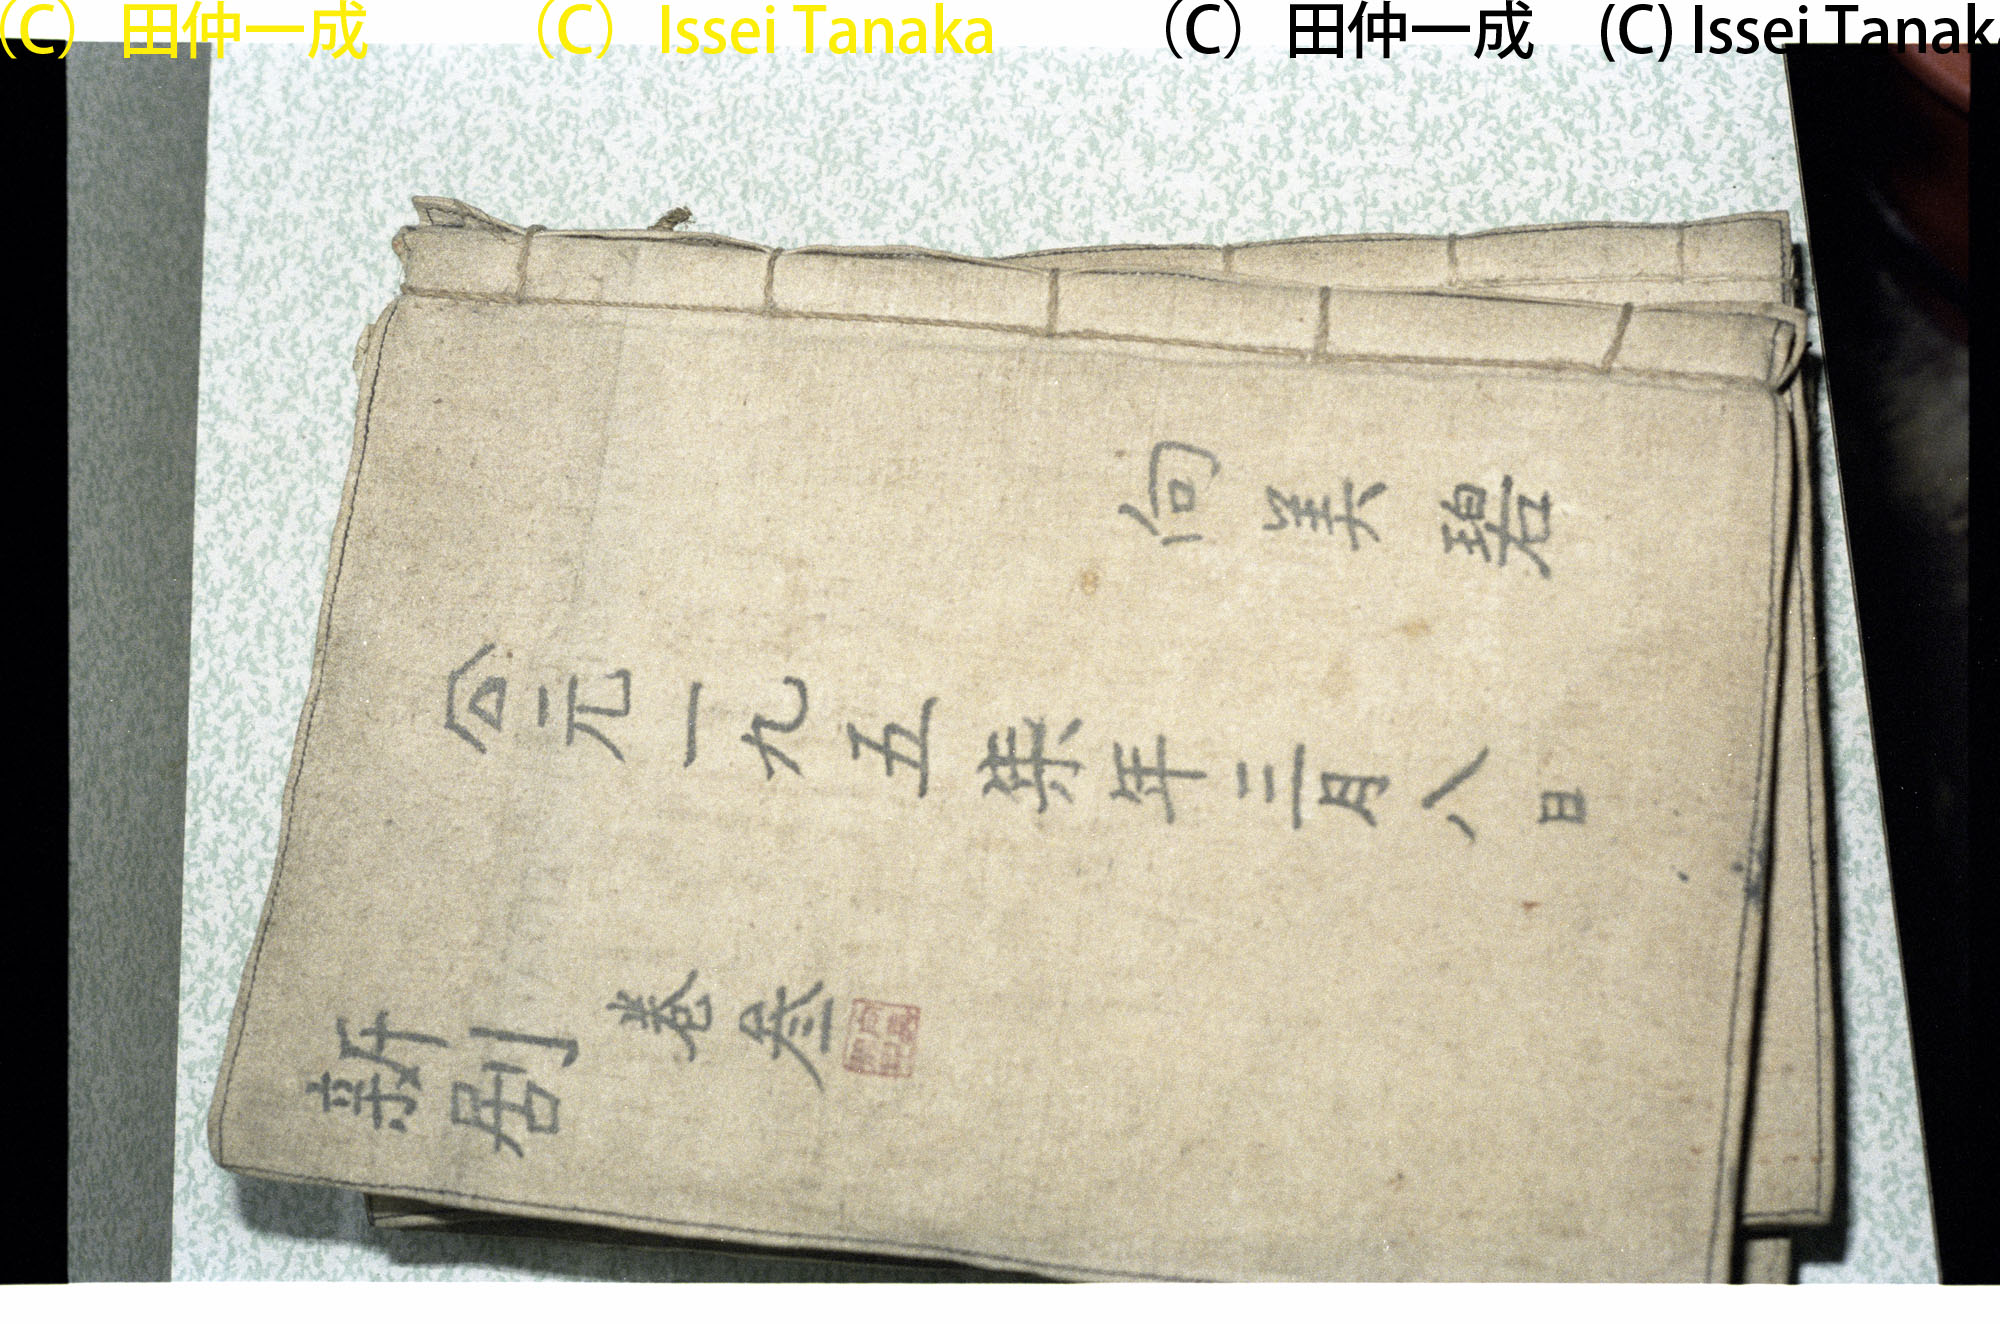 （C） 田仲一成 （C） Issei Tanaka （C） 田仲一成 (C) Issei Tanaka
向美碧
公元一九五柒年三月八日
新剧 卷叁